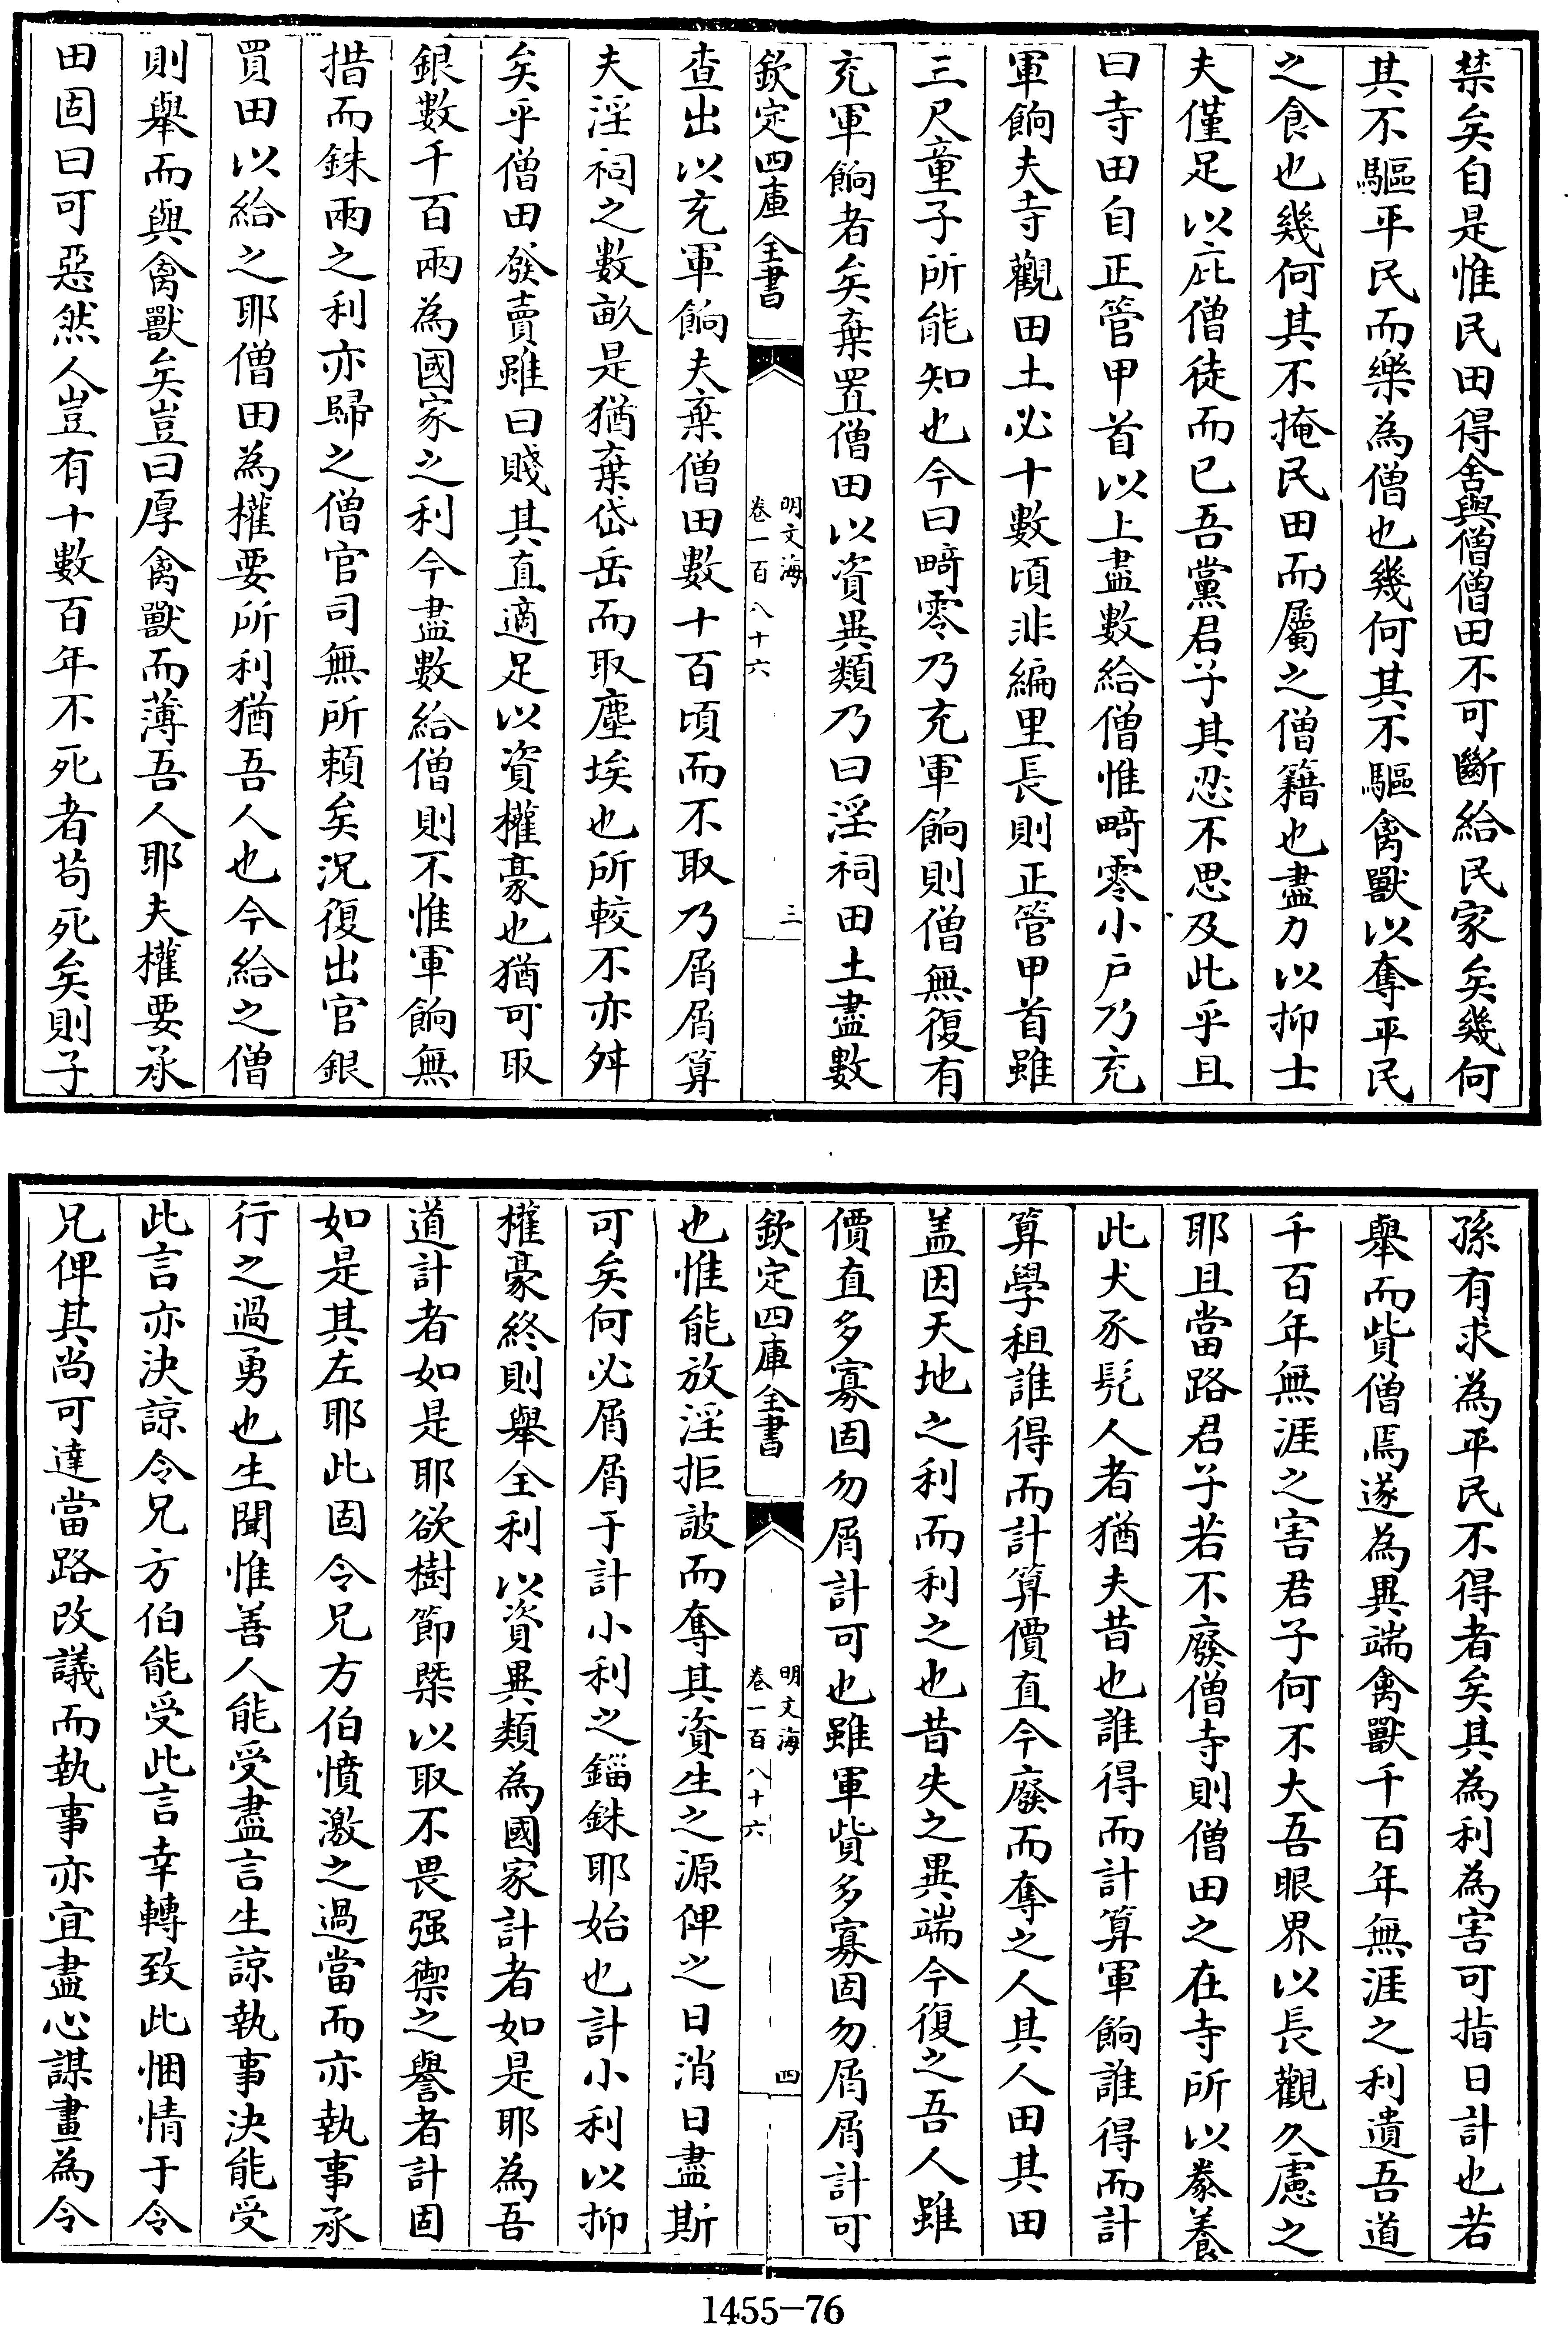 禁矣自是惟民田得舍與僧僧田不可斷給民家矣幾何
其不驅平民而樂為僧也幾何其不驅禽獸以奪平民
之食也幾何其不掩民田而屬之僧籍也盡力以抑士
夫僅足以庇僧徒而已吾黨君子其忍不思及此乎且
曰寺田自正管甲首以上盡數給僧惟畸零小戶乃充
軍餉夫寺觀田土必十數頃非編里長則正管甲首雖
三尺童子所能知也今曰畸零乃充軍餉則僧無復有
充軍餉者矣棄置僧田以資異類乃曰淫祠田土盡數
欽定四庫全書
明文海
卷一百八十六
三
查出以充軍餉夫棄僧田數十百頃而不取乃屑屑算
夫淫祠之數畝是猶棄岱岳而取塵埃也所較不亦舛
矣乎僧田發賣雖曰賤其直適足以資權豪也猶可取
銀數千百兩為國家之利今盡數給僧則不惟軍餉無
措而銖兩之利亦歸之僧官司無所賴矣況復出官銀
買田以給之耶僧田為權要所利猶吾人也今給之僧
則舉而與禽獸矣豈曰厚禽獸而薄吾人耶夫權要承
田固曰可惡然人豈有十數百年不死者苟死矣則子
孫有求為平民不得者矣其為利為害可指日計也若
舉而貲僧焉遂為異端禽獸千百年無涯之利遺吾道
千百年無涯之害君子何不大吾眼界以長觀久慮之
耶且當路君子若不廢僧寺則僧田之在寺所以豢養
此犬豕髠人者猶夫昔也誰得而計算軍餉誰得而計
算學租誰得而計算價直今廢而奪之人其人田其田
盖因天地之利而利之也昔失之異端今復之吾人雖
價直多寡固勿屑計可也雖軍貲多寡固勿屑屑計可
欽定四庫全書
明文海
卷一百八十六
四
也惟能放淫拒詖而奪其資生之源俾之日消日盡斯
可矣何必屑屑于計小利之錙銖耶始也計小利以抑
權豪終則舉全利以資異類為國家計者如是耶為吾
道計者如是耶欲樹節槩以取不畏强禦之譽者計固
如是其左耶此固令兄方伯憤激之過當而亦執事承
行之過勇也生聞惟善人能受盡言生諒執事決能受
此言亦決諒令兄方伯能受此言幸轉致此悃情于令
兄俾其尚可達當路改議而執事亦宜盡心謀畫為令
1455-76